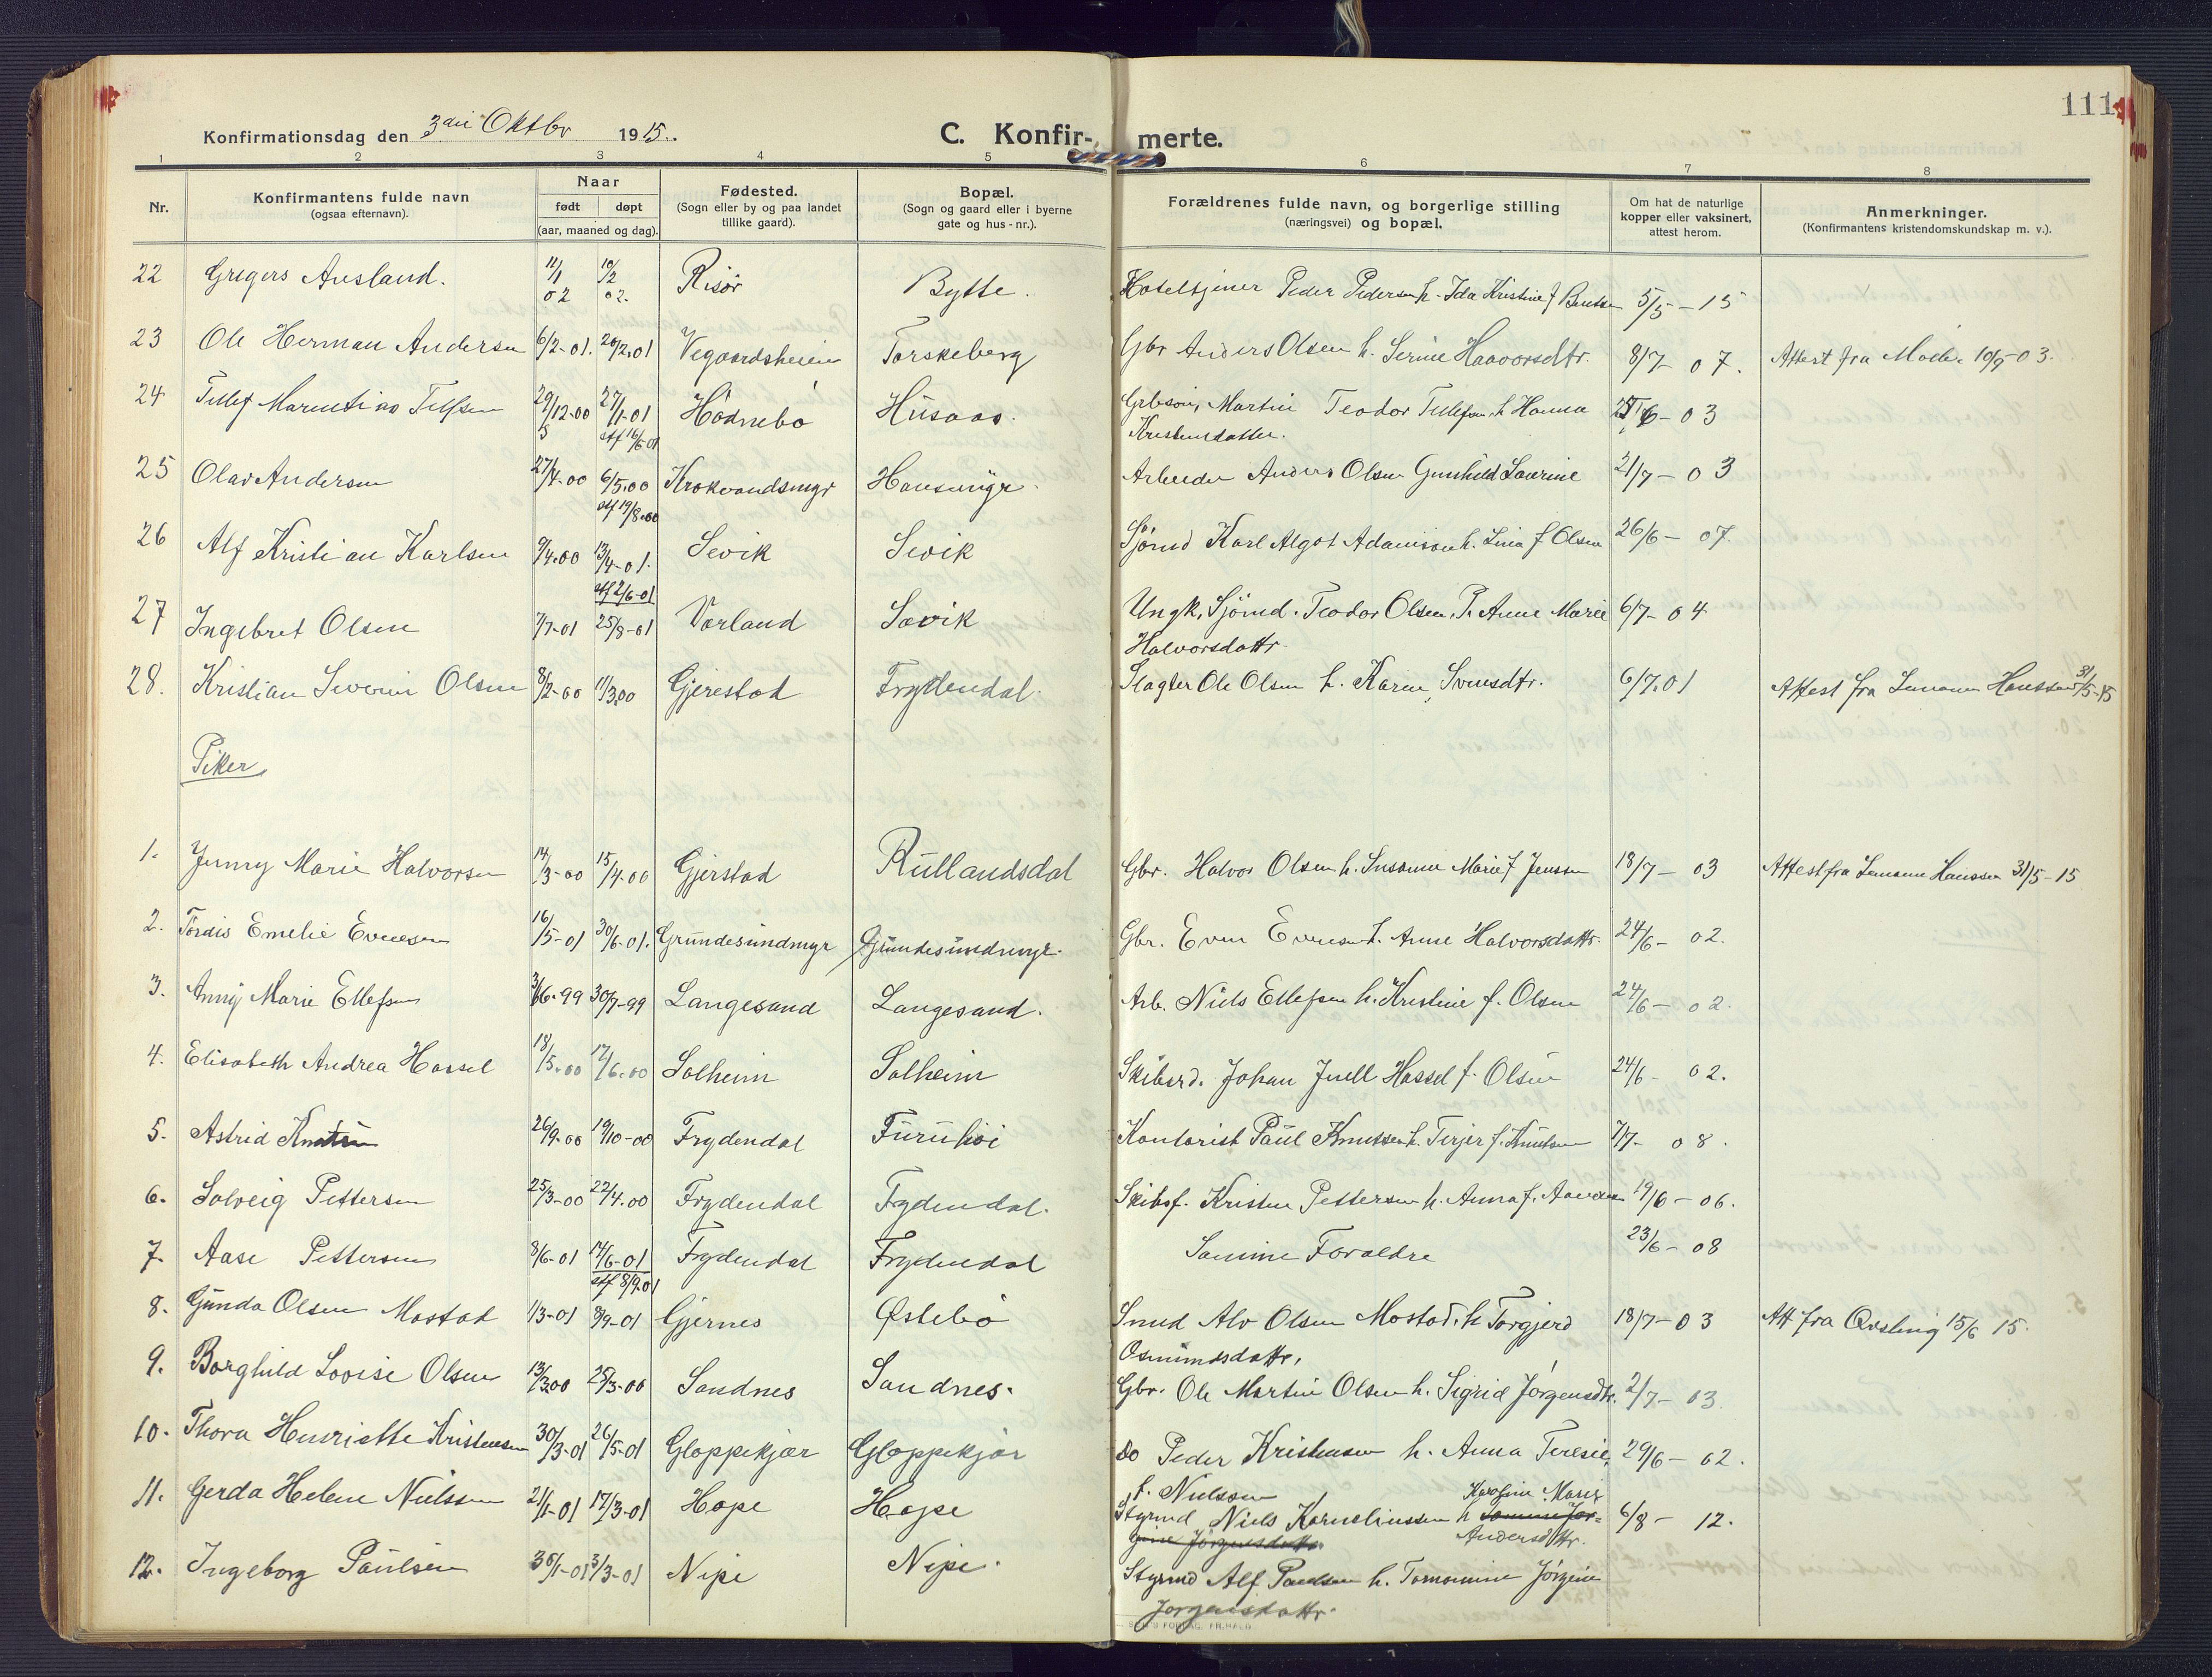 111
Konfirmationsdag den 3die Oktbr 1915.
C. Konfir- merte.
1 2 3 4 5 6 7 8
Nr.
Konfirmantens fulde navn
(ogsaa efternavn).
Naar
født døpt
(aar, maaned og dag).
Fødested.
(Sogn eller by og paa landet
tillike gaard).
Bopæl.
(Sogn og gaard eller i byerne
gate og hus-nr.).
Forældrenes fulde navn, og borgerlige stilling
(næringsvei) og bopæl.
Om hat de naturlige
kopper eller vaksinert,
attest herom.
Anmerkninger.
(Konfirmantens kristendomskundskap m. v.).
22 Gregers Ausland. 11/1 02 10/2 02. Risør Bytte. Hoteltjener Peder Pedersen h. Ida Kristine f 5/5-15
23 Ole Herman Andersen 6/2-01. 20/2.01 Vegaardsheien Torskeberg Gbr Anders Olsen h. Serine Haavorsdtr. 8/7-07. Attest fra 10/9-03.
24 29/12-00 27/1-01 Hødnebø Husaas. Martin Teodor Tellefsen h. Hanna 6-03
5 att 16/6-01 Kristensdatter.
25 Olav Andersen 27/4-00 6/5.00 Krokvandsmyr Arbeider Anders Olsen Gunhild Laurine 21/7-03
att 19/8.00
26 Alf Kristian Karlsen 9/4.00 13/4-01. Sevik Sevik Sjømd Karl Algot Adamson h. Lina f Olsen 26/6-07.
att 2/6-01
27 Ingebret Olsen 7/7-01 25/8-01 Vorland Søvik Ungk. Sjømd. Teodor Olsen, P. Anne Marie 6/7-04
Halvorsdattr.
28. Kristian Severin Olsen 8/2-00 11/3.00 Gjerestad Frydendal. Slagter Ole Olsen h. Karen Svensdtr. 6/7.01 Attest fra Hanssen 31/5-15
Piker
1. Jenny Marie Halvorsen 14/3-00 15/4.00 Gjerstad Rullandsdal Gbr. Halvor Olsen h. Susanne Marie f Jenssen 18/7-03 Attest fra Hanssen 31/5-15
2. Tordis Emelie Evensen 16/5-01 30/6-01. Grundesundmyr Grundesundmyr. Gbr. Even Evensen h. Anne Halvorsdattr. 24/6-02.
3. Anny Marie Ellefsen 3/6-99 30/7-99 Langesand Langesand. Arb. Niels Ellefsen h. Kristine f. Olsen 24/6-02.
4. Elisabeth Andrea Hassel 18/5.00 17/6.00 Solheim Solheim Johan Juell Hassel f. Olsen 24/6-02.
5. Astrid Knutsen 26/9.00 19/10-00 Frydendal Furuhøi Kontorist Paul Knutsen h. Terjer f. Knutsen 7/7-08.
6. Solveig Pettersen 25/3-00 22/4.00 Frydendal Fydendal. Skibsf. Kristen Pettersen h. Anna f. 19/6-06.
7. Aase Pettersen 8/6-01 14/6-01 Frydendal Frydendal Samme Foræeldre 23/6-08
att 8/9.01
8. Gunda Olsen Mostad 1/3-01 8/9-01 Gjernes Østebø Smed Alv Olsen Mostad. h Torgjerd 18/7-03 Att fra Qvsling 15/6 15.
Osmundsdattr.
9. Borghild Lovise Olsen 13/3.00 25/3-00 Sandnes Sandnes. Gbr. Ole Martin Olsen h. Sigrid Jørgensdtr. 2/7-03.
10. Thora Henriette Kristensen 30/3-01 26/5-01 Gloppekjær Gloppekjær Do Peder Kristensen h. Anna Teresie, 29/6-02.
f. Nielssen
11. Gerda Helene Nielssen 21/1-01 17/3-01 Hope Hope Styrmd Niels Korneliussen h Karoline Marie 6/8-12.
Andersdttr.
12. Ingeborg Paulsen 30/1-01 3/3-01 Nipe Nipe. Styrmd Alf Paulsen h. Tomomine Jørgine
Jørgensdattr.